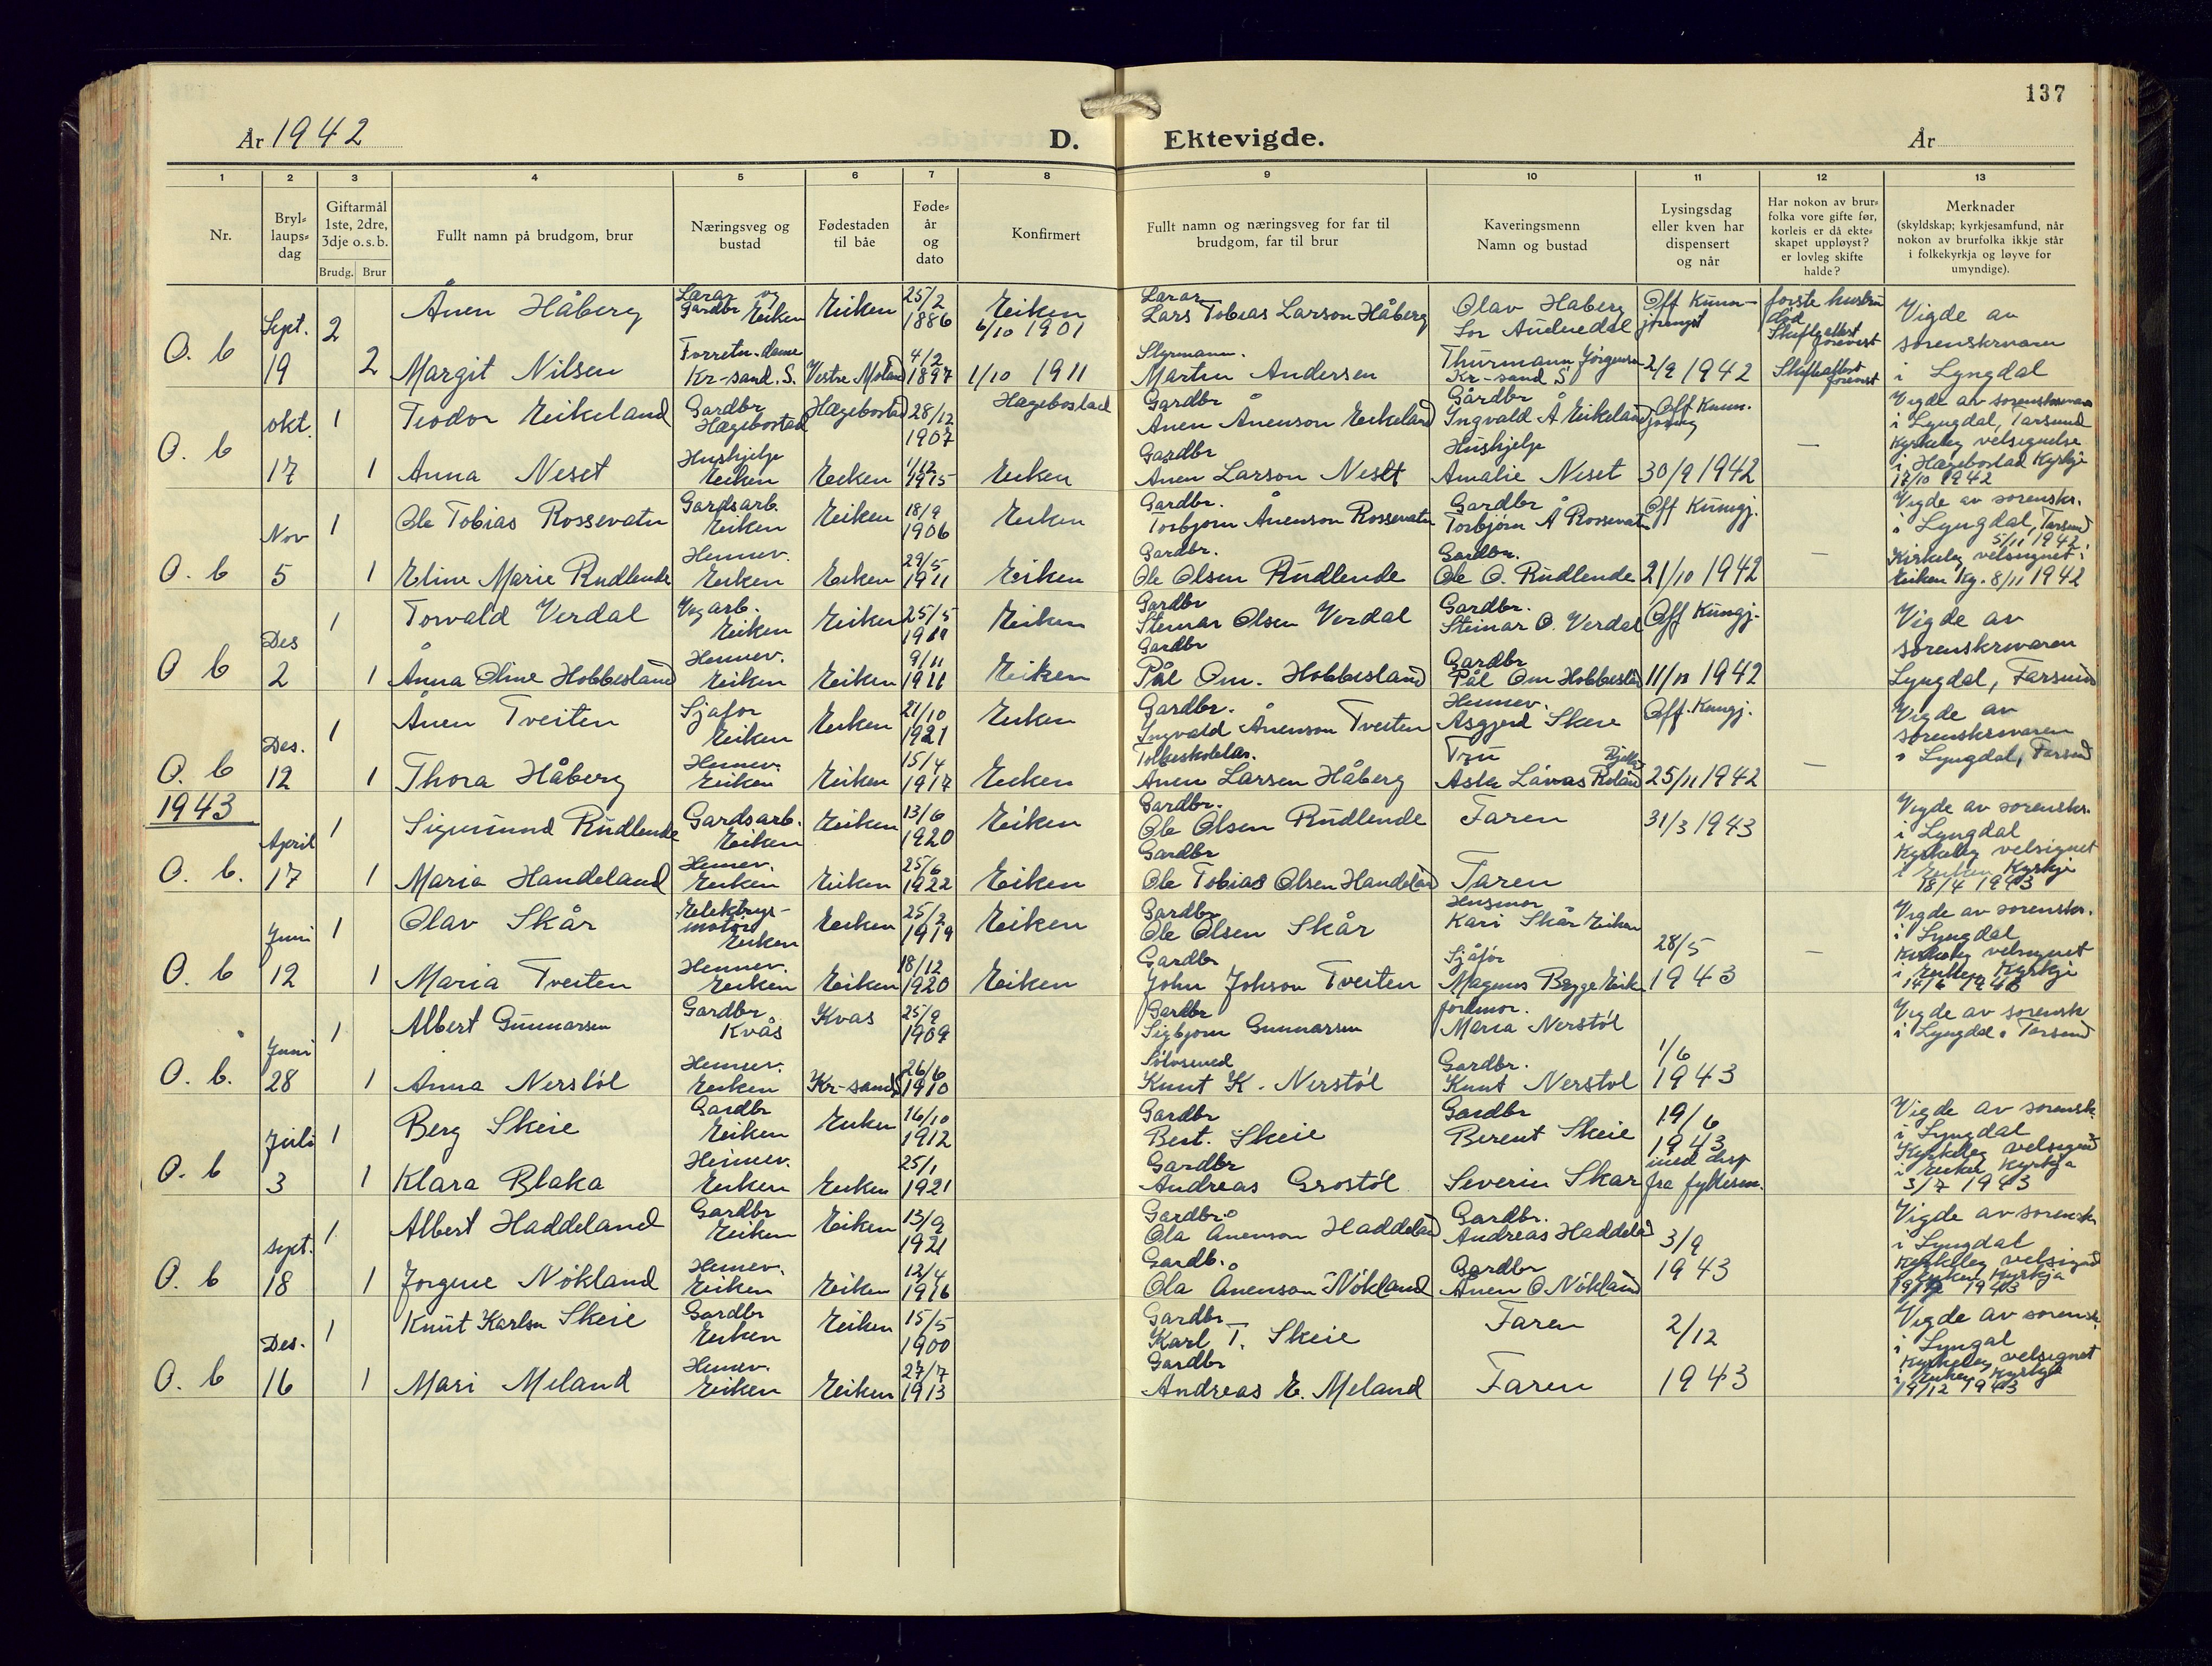 137
År 1942 D. Ektevigde. År
1 2 3 4 5 6 7 8 9 10 11 12 13
Nr.
Bryl-
laups-
dag
Giftarmål
1ste, 2dre,
3dje o.s.b.
Brudg. Brur
Fullt namn på brudgom, brur
Næringsveg og
bustad
Fødestaden
til båe
Føde-
år
og
dato
Konfirmert
Fullt namn og næringsveg for far til
brudgom, far til brur
Kaveringsmenn
Namn og bustad
Lysingsdag
eller kven har
dispensert
og når
Har nokon av brur-
folka vore gifte før,
korleis er då ekte-
skapet uppløyst?
er lovleg skifte
halde?
Merknader
(skyldskap; kyrkjesamfund, når
nokon av brurfolka ikkje står
i folkekyrkja og løyve for
umyndige).
O. b Sept. 19
2 Ånen Håberg Lærar og Gardbr Eiken Eiken 25/2 1886 Eiken 6/10 1901 Lærar Lars Tobias Larson Håberg Olav Håberg Sør Audnedal Off Kunn- første hustru død Skifteattest Vigde av
2 Margit Nilsen Forretn.dame Kr-sand. S. Vestre Moland 4/2 1897 1/10 1911 Styrmann. Martin Andersen Thurmann Jørgensen Kr-sand S 2/9 1942 Skifteattest sorenskrivaren i Lyngdal
O. b okt. 17
1 Teodor Eikeland Gardbr Hægebostad Hægebostad 28/12 1907 Hægebostad Gardbr Ånen Ånenson Eikeland Gårdbr Ingvald Å Eikeland Off Kunn. Vigde av sorenskrivaren i Lyngdal, Farsund
1 Anna Neset Hushjelp Eiken Eiken 1/12 1915 Eiken Gardbr Ånen Larson Neset Hushjelp Amalie Neset 30/9 1942 — Kyrkeleg velsignelse i Hægebostad Kyrkje 17/10 1942
O. b Nov 5
1 Ole Tobias Rossevatn Gardsarb. Eiken Eiken 18/9 1906 Eiken Gardbr. Torbjørn Ånenson Rossevatn Gardbr Torbjørn Å Rossevatn Off Kungj. Vigde av sorenskr. i Lyngdal, Farsund 5/11 1942
1 Eline Marie Rudlende Heimev. Eiken Eiken 29/5 1911 Eiken Gardbr. Ole Olsen Rudlende Gardbr. Ole O. Rudlende 21/10 1942 — Kirkeleg velsignet i Eiken Ky. 8/11 1942
O b Des 2
1 Torvald Verdal Vegarb. Eiken Eiken 25/5 Eiken Gardbr Steinar Olsen Verdal Gardbr. Steinar O. Verdal Off Kungj. Vigde av
1 Ånna Oline Hobbesland Heimev. Eiken Eiken 9/11 Eiken Gardbr Pål Om. Hobbesland Gardbr Pål Om Hobbesland 1942 sorenskrivaren Lyngdal, Farsund
O. b Des. 12
1 Ånen Tveiten Sjåfør Eiken Eiken 21/10 1921 Eiken Gardbr. Ingvald Ånenson Tveiten Heimev. Asgjerd Skeie Off. Kungj. Vigde av sorenskrivaren
1 Thora Håberg Heimev. Eiken Eiken 15/4 1917 Eiken Folkeskolelær. Ånen Larsen Håberg Fru 25/11 1942 — i Lyngdal, Farsund
1943
O. b. April 17
1 Sigmund Rudlende Gardsarb. Eiken Eiken 13/6 1920 Eiken Gardbr. Ole Olsen Rudlende Faren 31/3 1943 Vigde av sorenskr. i Lyngdal
1 Maria Handeland Heimev. Eiken Eiken 25/6 1922 Eiken Gardbr Ole Tobias Olsen Handeland Faren Kyrkeleg velsignet i Eiken Kyrkje 18/4 1943
O. b Juni 12
1 Olav Skår Eiken Eiken 25/2 1919 Eiken Gardbr Ole Olsen Skår Husmor Kari Skår Eiken Vigde av sorenskr. i Lyngdal
1 Maria Tveiten Heimev. Eiken Eiken 18/12 1920 Eiken Gardbr John Johson Tveiten Sjåfør Magnus Bygge Eik. 28/5 1943 — Kirkeleg velsignet i Eiken Kyrkje
O. b. Juni 28
1 Albert Gunnarsen Gardbr Kvås Kvås 25/9 1909 Gardbr Sigbjørn Gunnarsen Jordmor. Maria Nerstøl Vigde av sorensk i Lyngdal i Farsund
1 Anna Nerstöl Heimev. Eiken Kr-sand 26/6 1910 Sølvsmed Knut K. Nerstöl Gardbr. Knut Nerstol 1/6 1943
O. b Juli 3
1 Berg Skeie Gardbr Eiken Eiken 16/10 1912 Gardbr Bert. Skeie Gardbr Berent Skeie 19/6 1943 Vigde av sorensk i Lyngdal
1 Klara Blaka Heimev. Eiken Eiken 25/1 1921 Gardbr Andreas Grostöl Severin Skar med disp fra fylkesm. Kyrkeleg velsignet i Eiken Kyrkja 3/7 1943
O. b sept. 18
1 Albert Haddeland Gardbr Eiken Eiken 13/9 1921 Gardbr. Ola Ånenson Haddeland Gardbr. Andreas Haddeland 3/9 Vigde av sorensk i Lyngdal
1 Jorgine Nökland Heimev. Eiken Eiken 12/4 1916 Gardb. Ola Ånenson Nökland Gardbr Ånen O Nökland 1943 Kyrkeleg velsignet i Eiken Kyrkja 1943
O. b Des. 16
1 Knut Karlsen Skeie Gardbr Eiken Eiken 15/5 1900 Gardbr Karl T. Skeie Faren 2/12 Vigde av sorensk. i Lyngal
1 Mari Meland Heimev. Eiken Eiken 27/7 1913 Gardbr Andreas E. Meland Faren 1943 Kyrkeleg velsignet i Eiken Kyrkja 19/12 1943